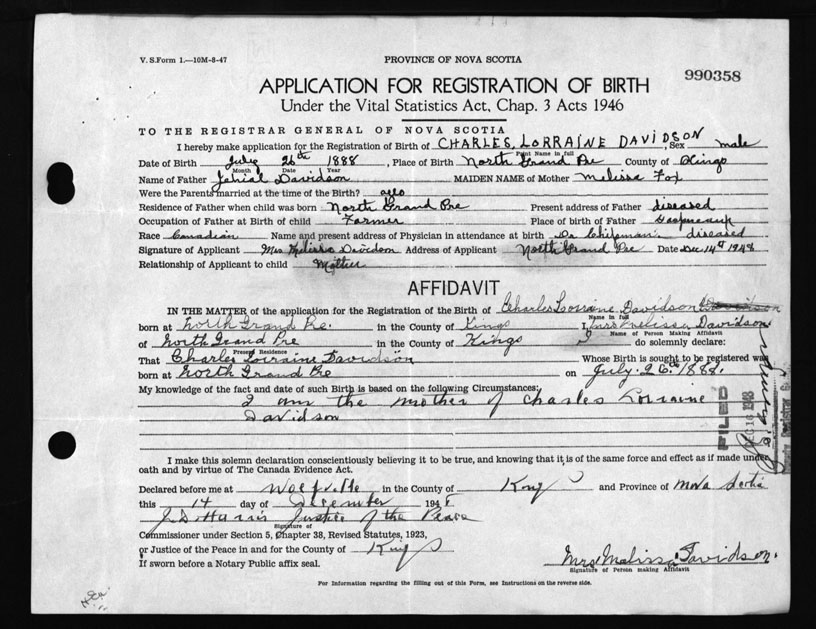 V. S. Form 1.—10M-8-47
PROVINCE OF NOVA SCOTIA
990358
APPLICATION FOR REGISTRATION OF BIRTH
Under the Vital Statistics Act, Chap. 3 Acts 1946
TO THE REGISTRAR GENERAL OF NOVA SCOTIA
I hereby make application for the Registration of Birth of CHARLES, LORRAINE DAVIDSON Sex male
Print Name in full
Date of Birth July 26th 1888, Place of Birth North Grand Pre County of Kings
Month Date Year
Name of Father Jehial Davidson MAIDEN NAME of Mother Melissa Fox
Were the Parents married at the time of the Birth?
Residence of Father when child was born North Grand Pre Present address of Father diseased
Occupation of Father at Birth of child Farmer Place of birth of Father Gaspereaux
Race Canadian Name and present address of Physician in attendance at birth Dr Chipman diseased
Signature of Applicant Mrs Melissa Davidson Address of Applicant North Grand Pre Date Dec 14th 1948
Relationship of Applicant to child Mother
AFFIDAVIT
IN THE MATTER of the application for the Registration of the Birth of Charles Lorraine Davidson
Name in full
born at North Grand Pre. in the County of Kings I, Mrs Melissa Davidson
Name of Person Making Affidavit
of North Grand Pre in the County of Kings do solemnly declare:
Present Residence
That Charles Lorraine Davidson Whose Birth is sought to be registered was
born at North Grand Pre on July. 26th 1888.
My knowledge of the fact and date of such Birth is based on the following Circumstances:
I am the mother of Charles Lorraine
Davidson
FILED
I make this solemn declaration conscientiously believing it to be true, and knowing that it is of the same force and effect as if made under
oath and by virtue of The Canada Evidence Act.
Declared before me at Wolfville in the County of Kings and Province of Nova Scotia
this 14 day of December 1948
J. D. Harris Justice of the Peace
Signature of
Commissioner under Section 5, Chapter 38, Revised Statutes, 1923,
or Justice of the Peace in and for the County of Kings
If sworn before a Notary Public affix seal.
Mrs Melissa Davidson.
Signature of Person making Affidavit
For Information regarding the filling out of this Form, see Instructions on the reverse side.